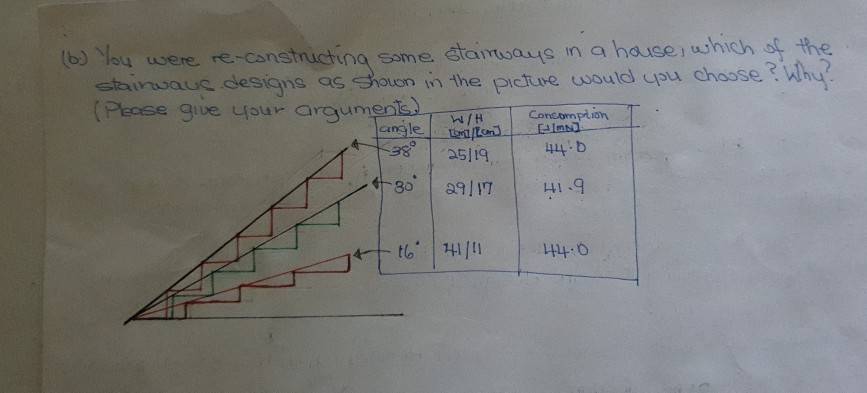 (b) You were re-constructing some stairways in a house, which of the
stairways designs as shown in the picture would you choose? Why?
(Please give your arguments.)
angle W/H [cm]/[cm] Consomption [J/mN]
38° 25/19 44.0
30° 29/17 41.9
16° 41/11 44.0